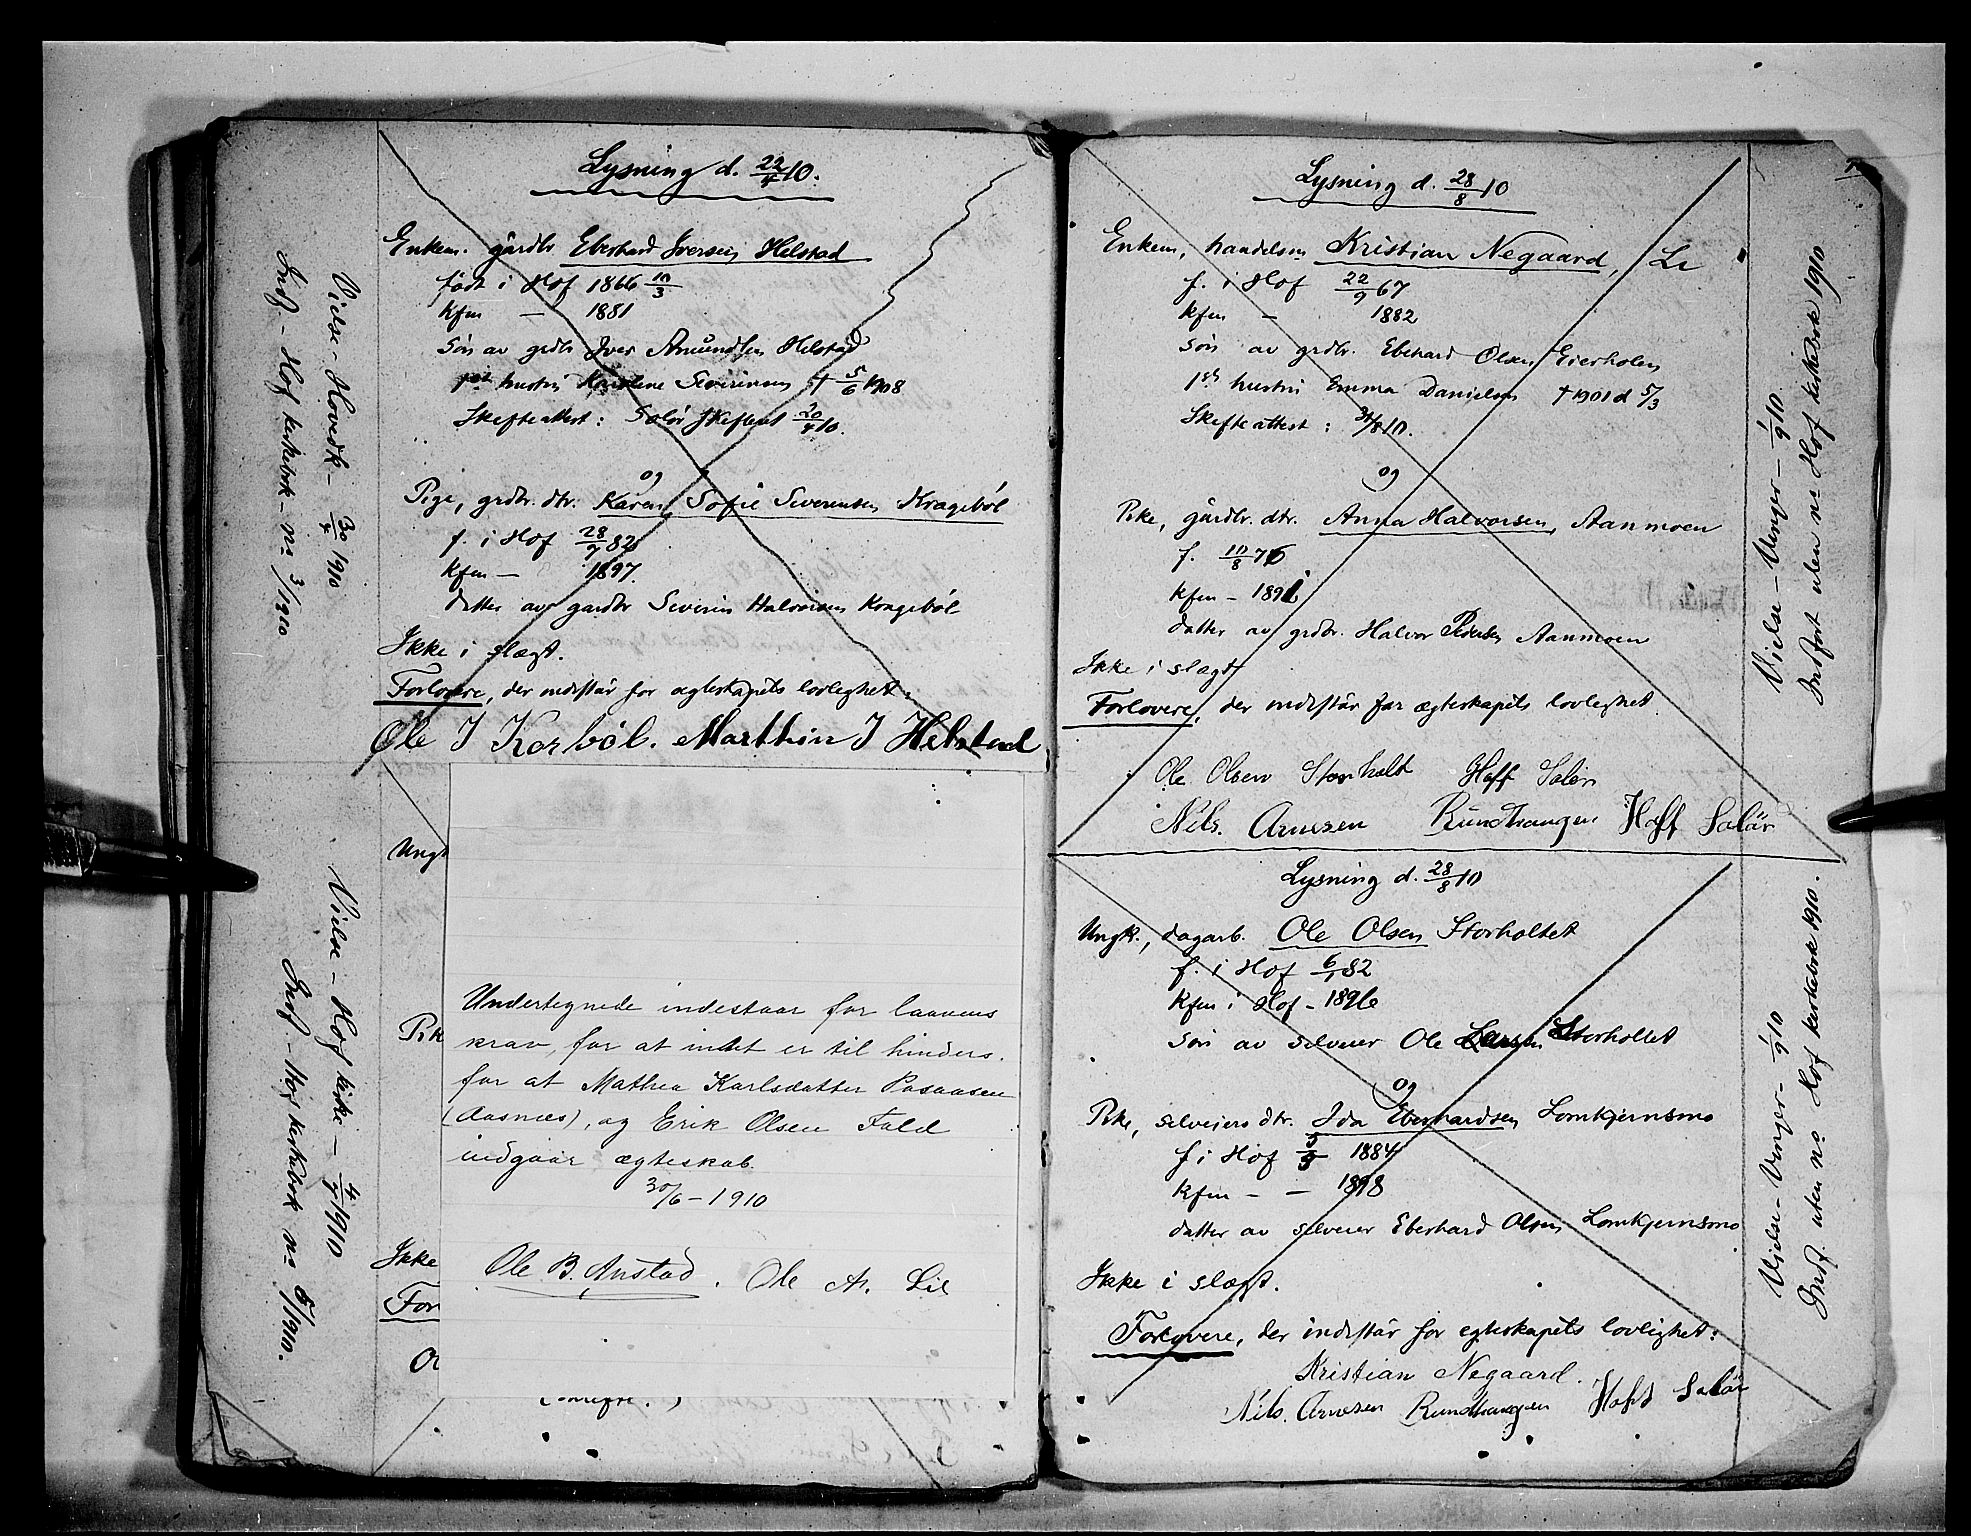 Lysning d. 22/4 10.
Enkem. gårdbr Eberhard Iversen Helstad
født i Hof 1866 10/3
kfm — 1881
Søn av grdbr Iver Amundsen Helstad
1ste hustru Karoline Severinsen † 5/6 1908
Skifteattest: Solør Skifteret 20/4 10.
og
Pige, grdbr. dtr. Karen Sofie Severinsen Kragebøl
f. i Hof 28/7 82
kfm — 1897.
datter av gardbr Severin Halvorsen Kragebøl
Ikke i slægt.
Forlovere, der indestår for ægteskapets lovlighet:
Ole I Korbøl. Marthin I Helstad
Vielse - Hovedk - 30/4 1910
Indf. - Hof kirkebok - no 3/1910
Ungk
Pik
Ikke
For
Undertegnede indestaar for laavens
krav, for at intet er til hinders
for at Mathea Karlsdatter Posaasen
(Aasnæs), og Erik Olsen Fald
indgaar ægteskab.
30/6 - 1910
Ole B. Anstad. Ole A. Lie
Vielse - Hof kirke - 4/7 1910
Indf - Hof kirkebok no 5/1910.
Lysning d. 28/8 10
Enkem, handelsm Kristian Negaard, Li
f. i Hof 22/9 67
kfm - 1882
Søn av grdbr. Eberhard Olsen Eierholen
1ste hustru Emma Danielsen † 1901 d 5/3
Skifteattest: 31/8 10.
og
Pike, gårdbr. dtr. Anna Halvorsen, Aanmoen
f. 10/8 76
kfm - 1891
datter av grdbr. Halvor Pedersen Aanmoen
Ikke i slægt
Forlovere, der indestår for ægteskapets lovlighet
Ole Olsen Storholt Hoff Solør
Nils. Arnesen Rundhaugen Hoff Solør
Vielse - Vinger - 1/9 10
Indført uten no Hof kirkebok 1910
Lysning d. 28/8 10
Ungk., dagarb. Ole Olsen Storholtet
f. i Hof 6/1 82
kfm i Hof - 1896
Søn av selveier Ole Larsen Storholtet
og
Pike, selveiers dtr. Ida Eberhardsen Lomkjernsmo
f i Hof 5/9 1884
kfm - - 1898
datter av selveier Eberhard Olsen Lomkjernsmo
Ikke i slægt.
Forlovere, der indestår for egteskapets lovlighet:
Kristian Negaard.
Nils. Arnesen Rundhaugen Hoff Solør
Vielse - Vinger - 1/9 10
Indf. uten no Hof kirkebok 1910.